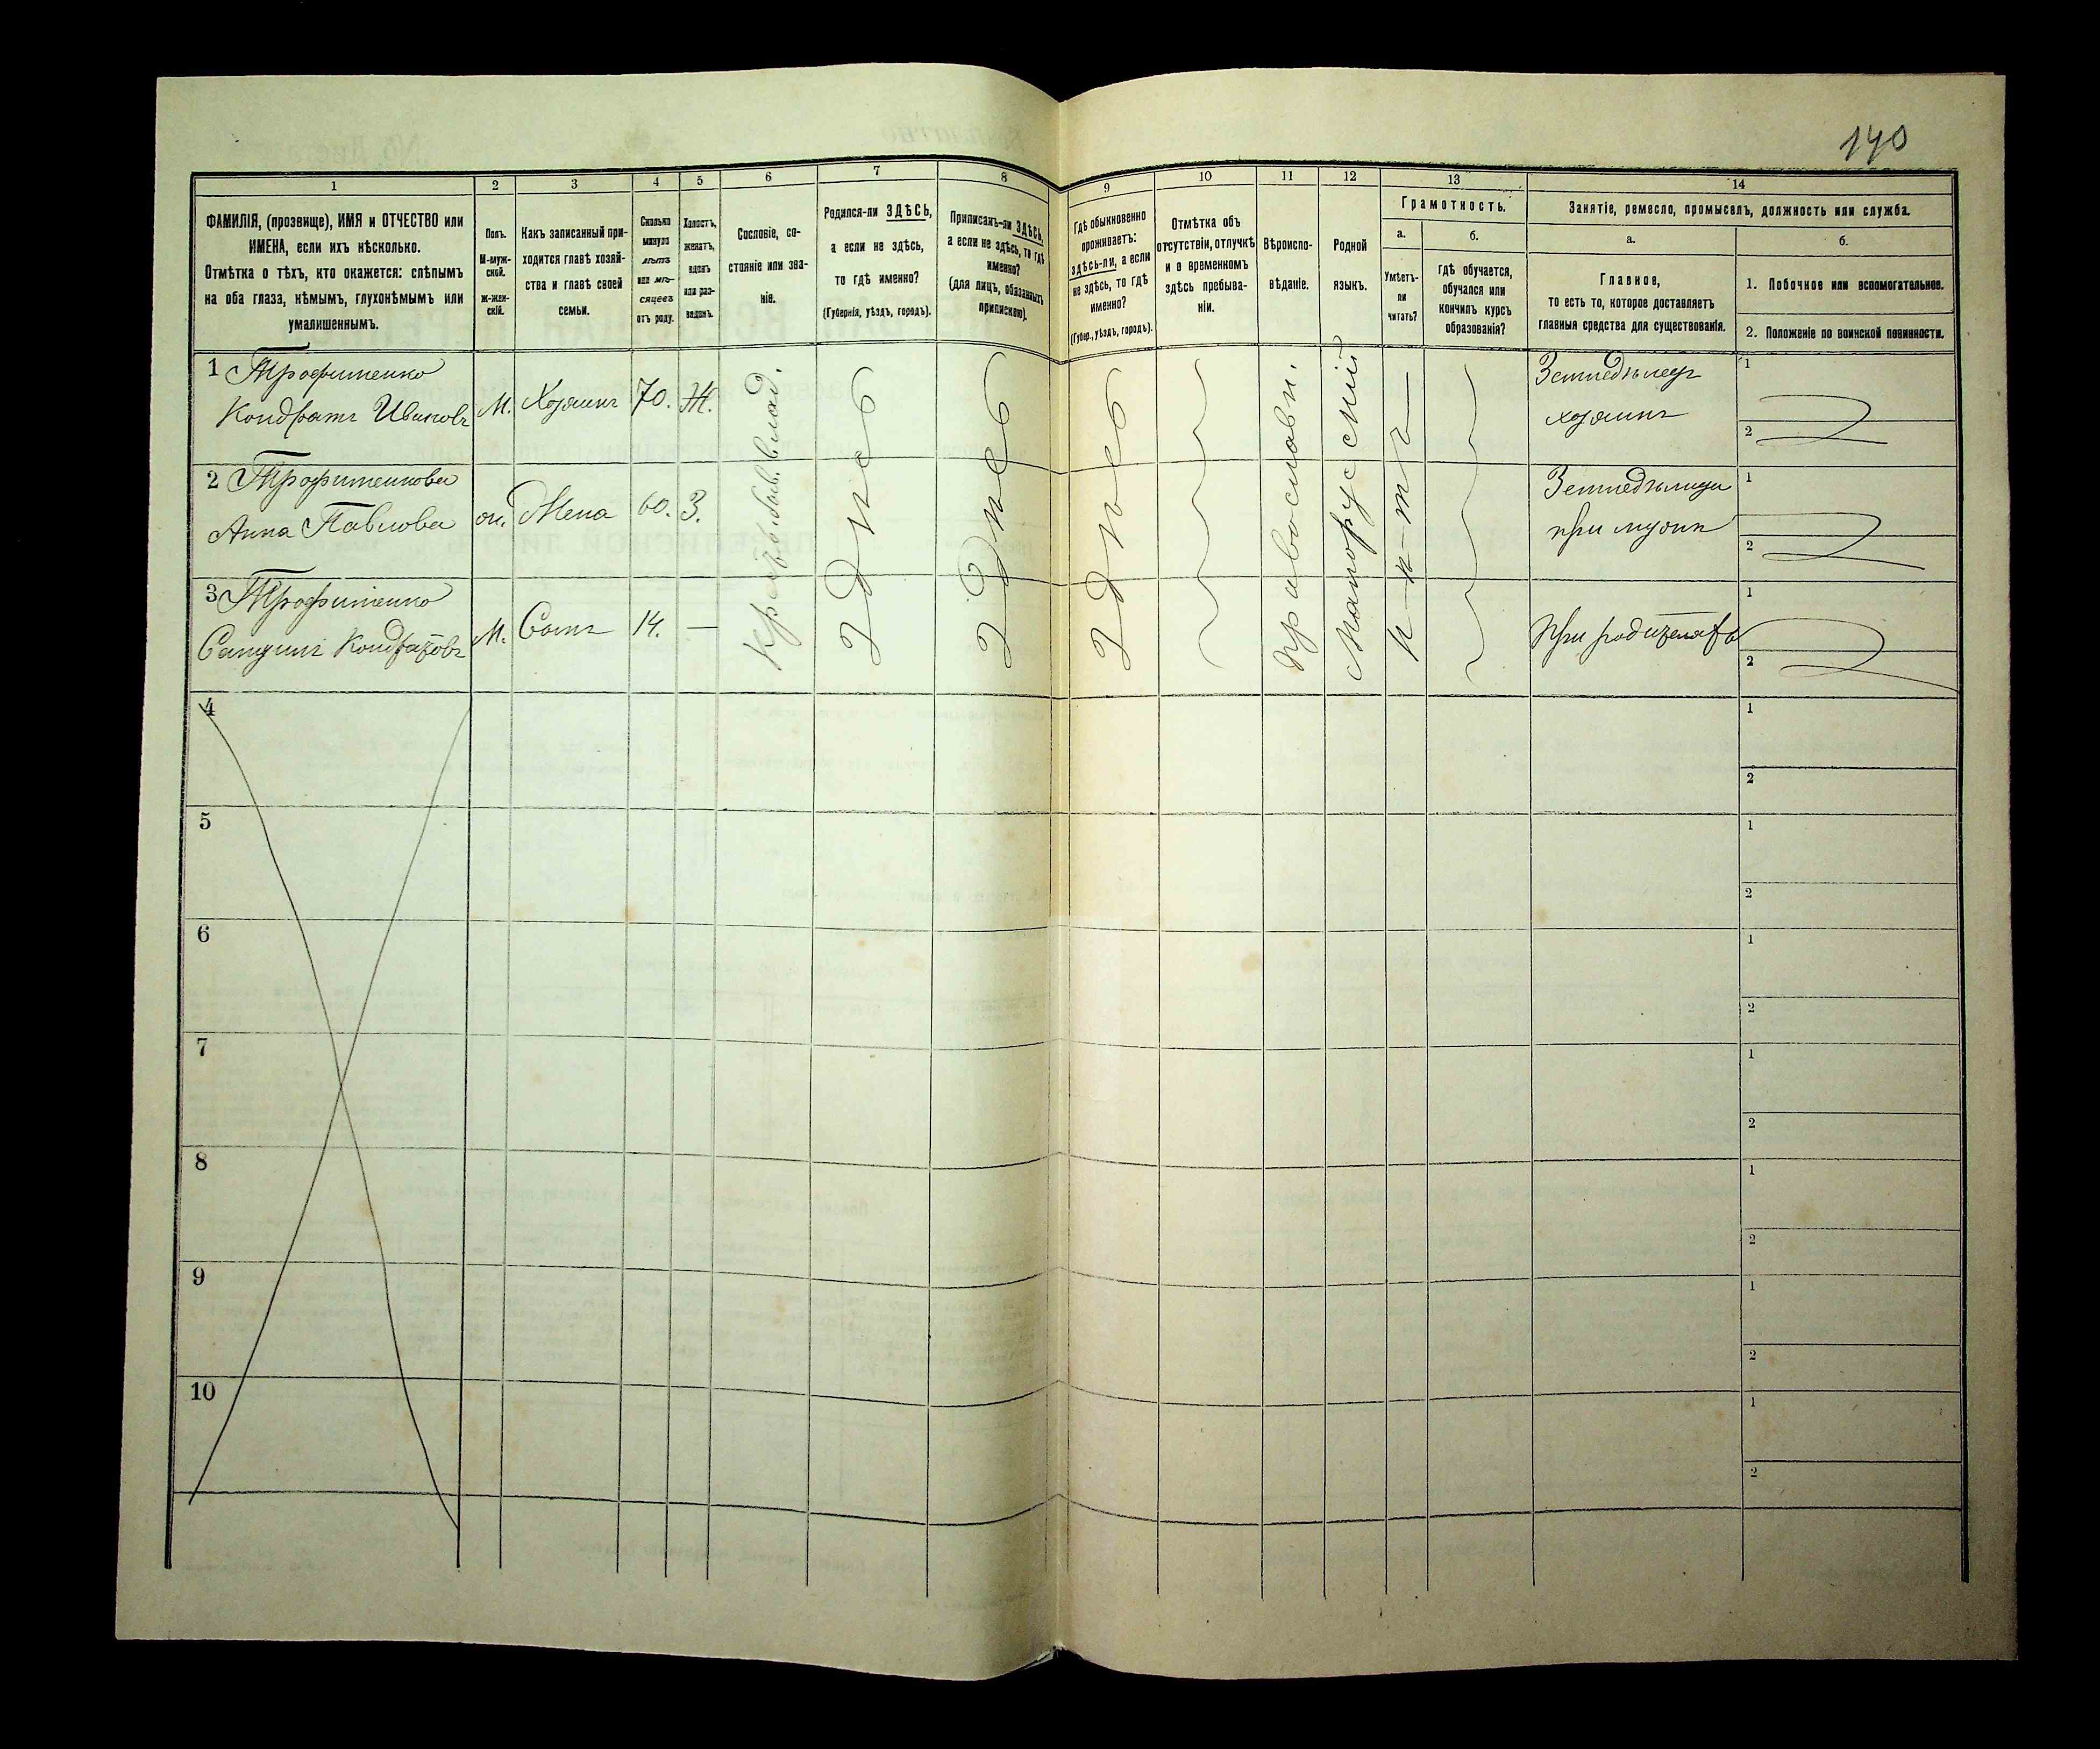 140
1
2
3
4
5
6
7
8
9
10
11
12
13
14
ФАМИЛІЯ, (прозвище), ИМЯ и ОТЧЕСТВО или
ИМЕНА, если ихъ нѣсколько.
Отмѣтка о тѣхъ, кто окажется: слѣпымъ
на оба глаза, нѣмымъ, глухонѣмымъ или
умалишеннымъ.
Полъ.
М-муж-
ской.
ж-жен-
скій.
Какъ записанный при-
ходится главѣ хозяй-
ства и главѣ своей
семьи.
Сколько
минуло
лѣтъ
или мѣ-
сяцевъ
отъ роду.
Холостъ,
женатъ,
вдовъ
или раз-
веденъ.
Сословіе, со-
стояніе или зва-
ніе.
Родился-ли ЗДѢСЬ,
а если не здѣсь,
то гдѣ именно?
(Губернія, уѣздъ, городъ).
Приписанъ-ли ЗДѢСЬ,
а если не здѣсь, то гдѣ
именно?
(для лицъ, обязанныхъ
припискою).
Гдѣ обыкновенно
проживаетъ:
здѣсь-ли, а если
не здѣсь, то гдѣ
именно?
(Губер., уѣздъ, городъ).
Отмѣтка объ
отсутствіи, отлучкѣ
и о временномъ
здѣсь пребыва-
ніи.
Вѣроиспо-
вѣданіе.
Родной
языкъ.
Грамотность.
а.
Умѣетъ-
ли
читать?
б.
гдѣ обучается,
обучался или
кончилъ курсъ
образованія?
Занятіе, ремесло, промыселъ, должность или служба.
а.
Главное,
то есть то, которое доставляетъ
главныя средства для существованія.
б.
1. Побочное или вспомогательное.
2. Положеніе по воинской повинности.
1 Трофименко
Кондратъ Ивановъ
М.
Хозяинъ
70.
Ж.
Земледѣлецъ
хозяинъ
1
2
2 Трофименкова
Анна Павлова
ж.
Жена
60.
З.
Земледѣлица
при мужѣ
1
2
3 Трофименко
Кондратовъ
М.
Сынъ
14.
—
При родителяхъ
1
2
Здѣсь
Здѣсь
Здѣсь
Православн.
Малорусскій
нѣтъ
4
1
2
5
1
2
6
1
2
7
1
2
8
1
2
9
1
2
10
1
2